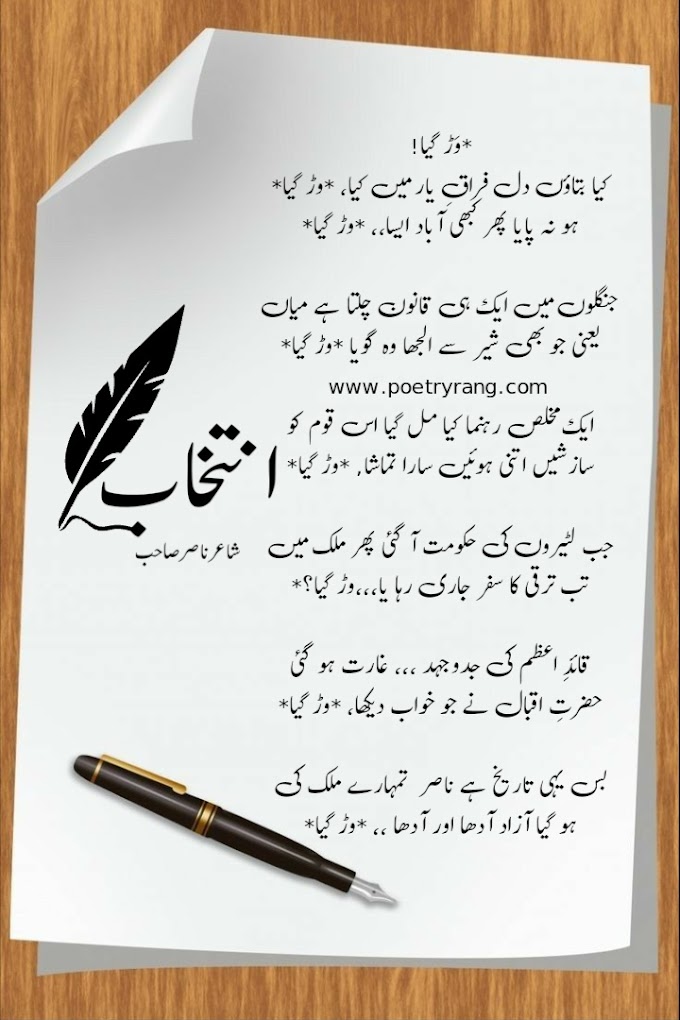 *وَڑ گیا!
کیا بتاؤں دل فراقِ یار میں کیا، *وڑ گیا*
ہو نہ پایا پھر کبھی آباد ایسا،، *وڑ گیا*
جنگلوں میں ایک ہی قانون چلتا ہے میاں
یعنی جو بھی شیر سے الجھا وہ گویا *وڑ گیا*
www.poetryrang.com
ایک مخلص رہنما کیا مل گیا اس قوم کو
سازشیں اتنی ہوئیں سارا تماشا, *وڑ گیا*
انتخاب
شاعر ناصر صاحب
جب لٹیروں کی حکومت آ گئی پھر ملک میں
تب ترقی کا سفر جاری رہا یا،،،وڑ گیا؟*
قائدِ اعظم کی جدوجہد ،،، غارت ہو گئی
حضرتِ اقبال نے جو خواب دیکھا، *وڑ گیا*
بس یہی تاریخ ہے ناصر تمہارے ملک کی
ہو گیا آزاد آدھا اور آدھا ،، *وڑ گیا*